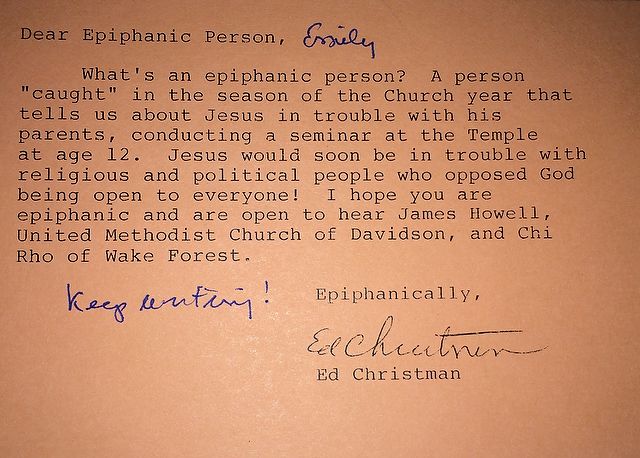 Dear Epiphanic Person, Emily
What's an epiphanic person? A person
"caught" in the season of the Church year that
tells us about Jesus in trouble with his
parents, conducting a seminar at the Temple
at age 12. Jesus would soon be in trouble with
religious and political people who opposed God
being open to everyone! I hope you are
epiphanic and are open to hear James Howell,
United Methodist Church of Davidson, and Chi
Rho of Wake Forest.
Keep writing!
Epiphanically,
Ed Christman
Ed Christman